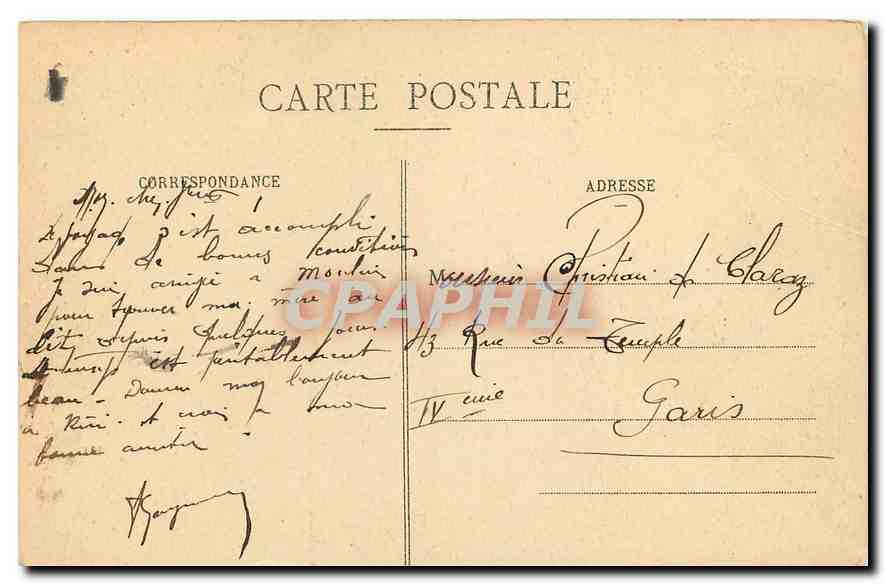 CARTE POSTALE
CORRESPONDANCE
ADRESSE
s'est accompli
dans de bonnes conditions
Je suis arrivé à Moulins
pour trouver ma mère au
lit depuis quelques jours
temps est
beau - Donner mon bonjour
à Riri. A
bonne amitié
Monsieur Christian de Claraz
43 Rue du Temple
IV eme Paris
CPAPHIL